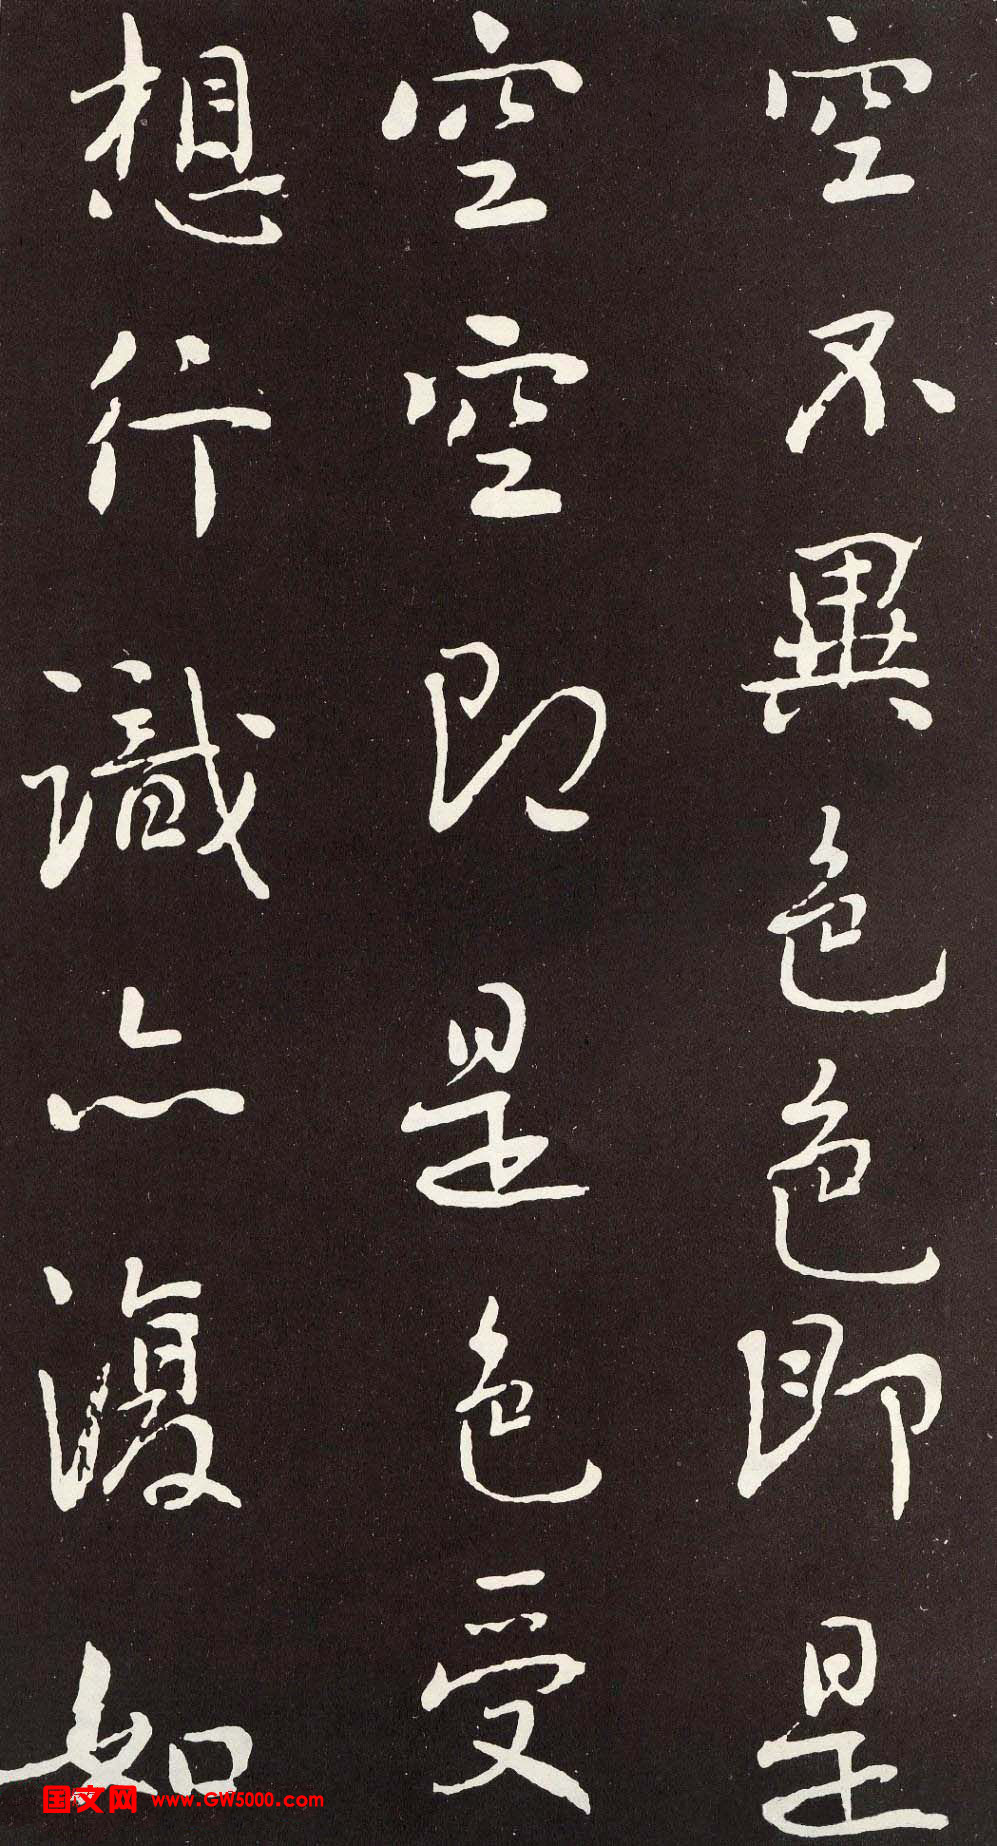 空不異色色即是
空空即是色受
想行識亦復如
国文网 www.GW5000.com